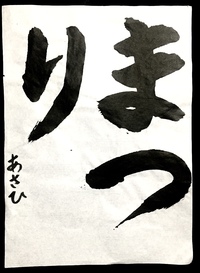 まつ
り
あさひ